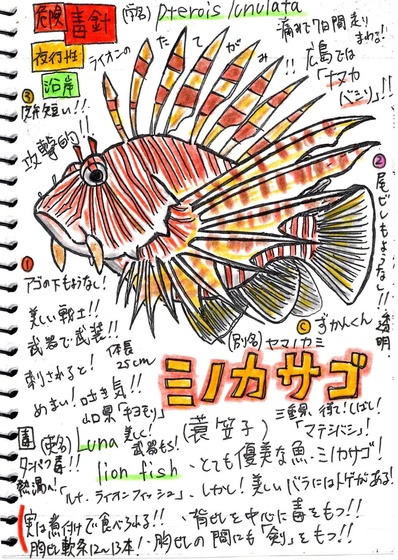 危険
毒針
(学名) Pterois lunulata
夜行性
ライオンのたてがみ!!
沿岸
痛みで7日間走りまわる!!
広島では
「ナマカバミシ」!!
③
気短い!!
攻撃的!!
②
尾ビレもようなし!!
透明
①
アゴの下もようなし!
美しい戦士!!
武器で武装!!
体長
25cm
刺されると!
めまい!吐き気!!
山口県「キヨモリ」
© ずかんくん
(別名)ヤマノカミ
ミノカサゴ
毒
タンパク毒!!
熱湯へ!
(英名) Luna
美しく!
武器もち!
(蓑笠子)
三重県
「マテシバシ」!
lion fish
・とても優美な魚・ミノカサゴ!
「ルナ・ライオンフィッシュ」・しかし!美しいバラにはトゲがある!
実は煮付けで食べられる!!・背ビレを中心に毒をもつ!!
胸ビレ軟条12~13本!・胸ビレの間にも「剣」をもつ!!